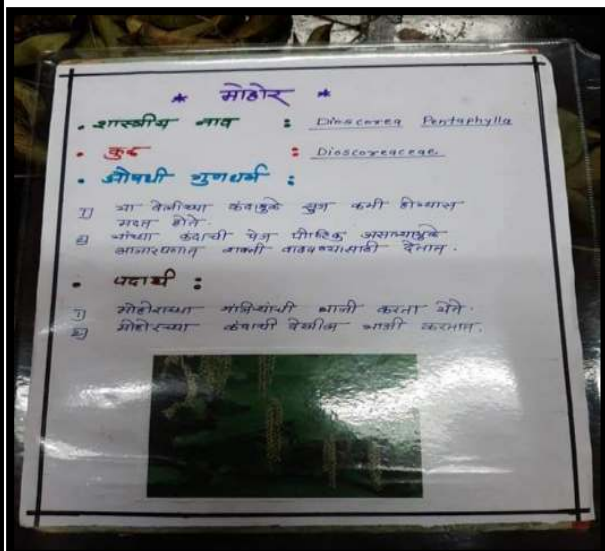 * मोहोर *
• शास्त्रीय नाव : Dioscorea Pentaphylla
• कुळ : Dioscoreaceae
• औषधी गुणधर्म :
1) या वेलीच्या कंदामुळे सूज कमी होण्यास
मदत होते.
2) यांच्या कंदाची पेज पौष्टिक असल्यामुळे
आजारपणात ताकद वाढवण्यासाठी देतात.
• पदार्थ :
1) मोहोराच्या भाजी करता येते.
2) मोहोरच्या कंदाची देखील भाजी करतात.